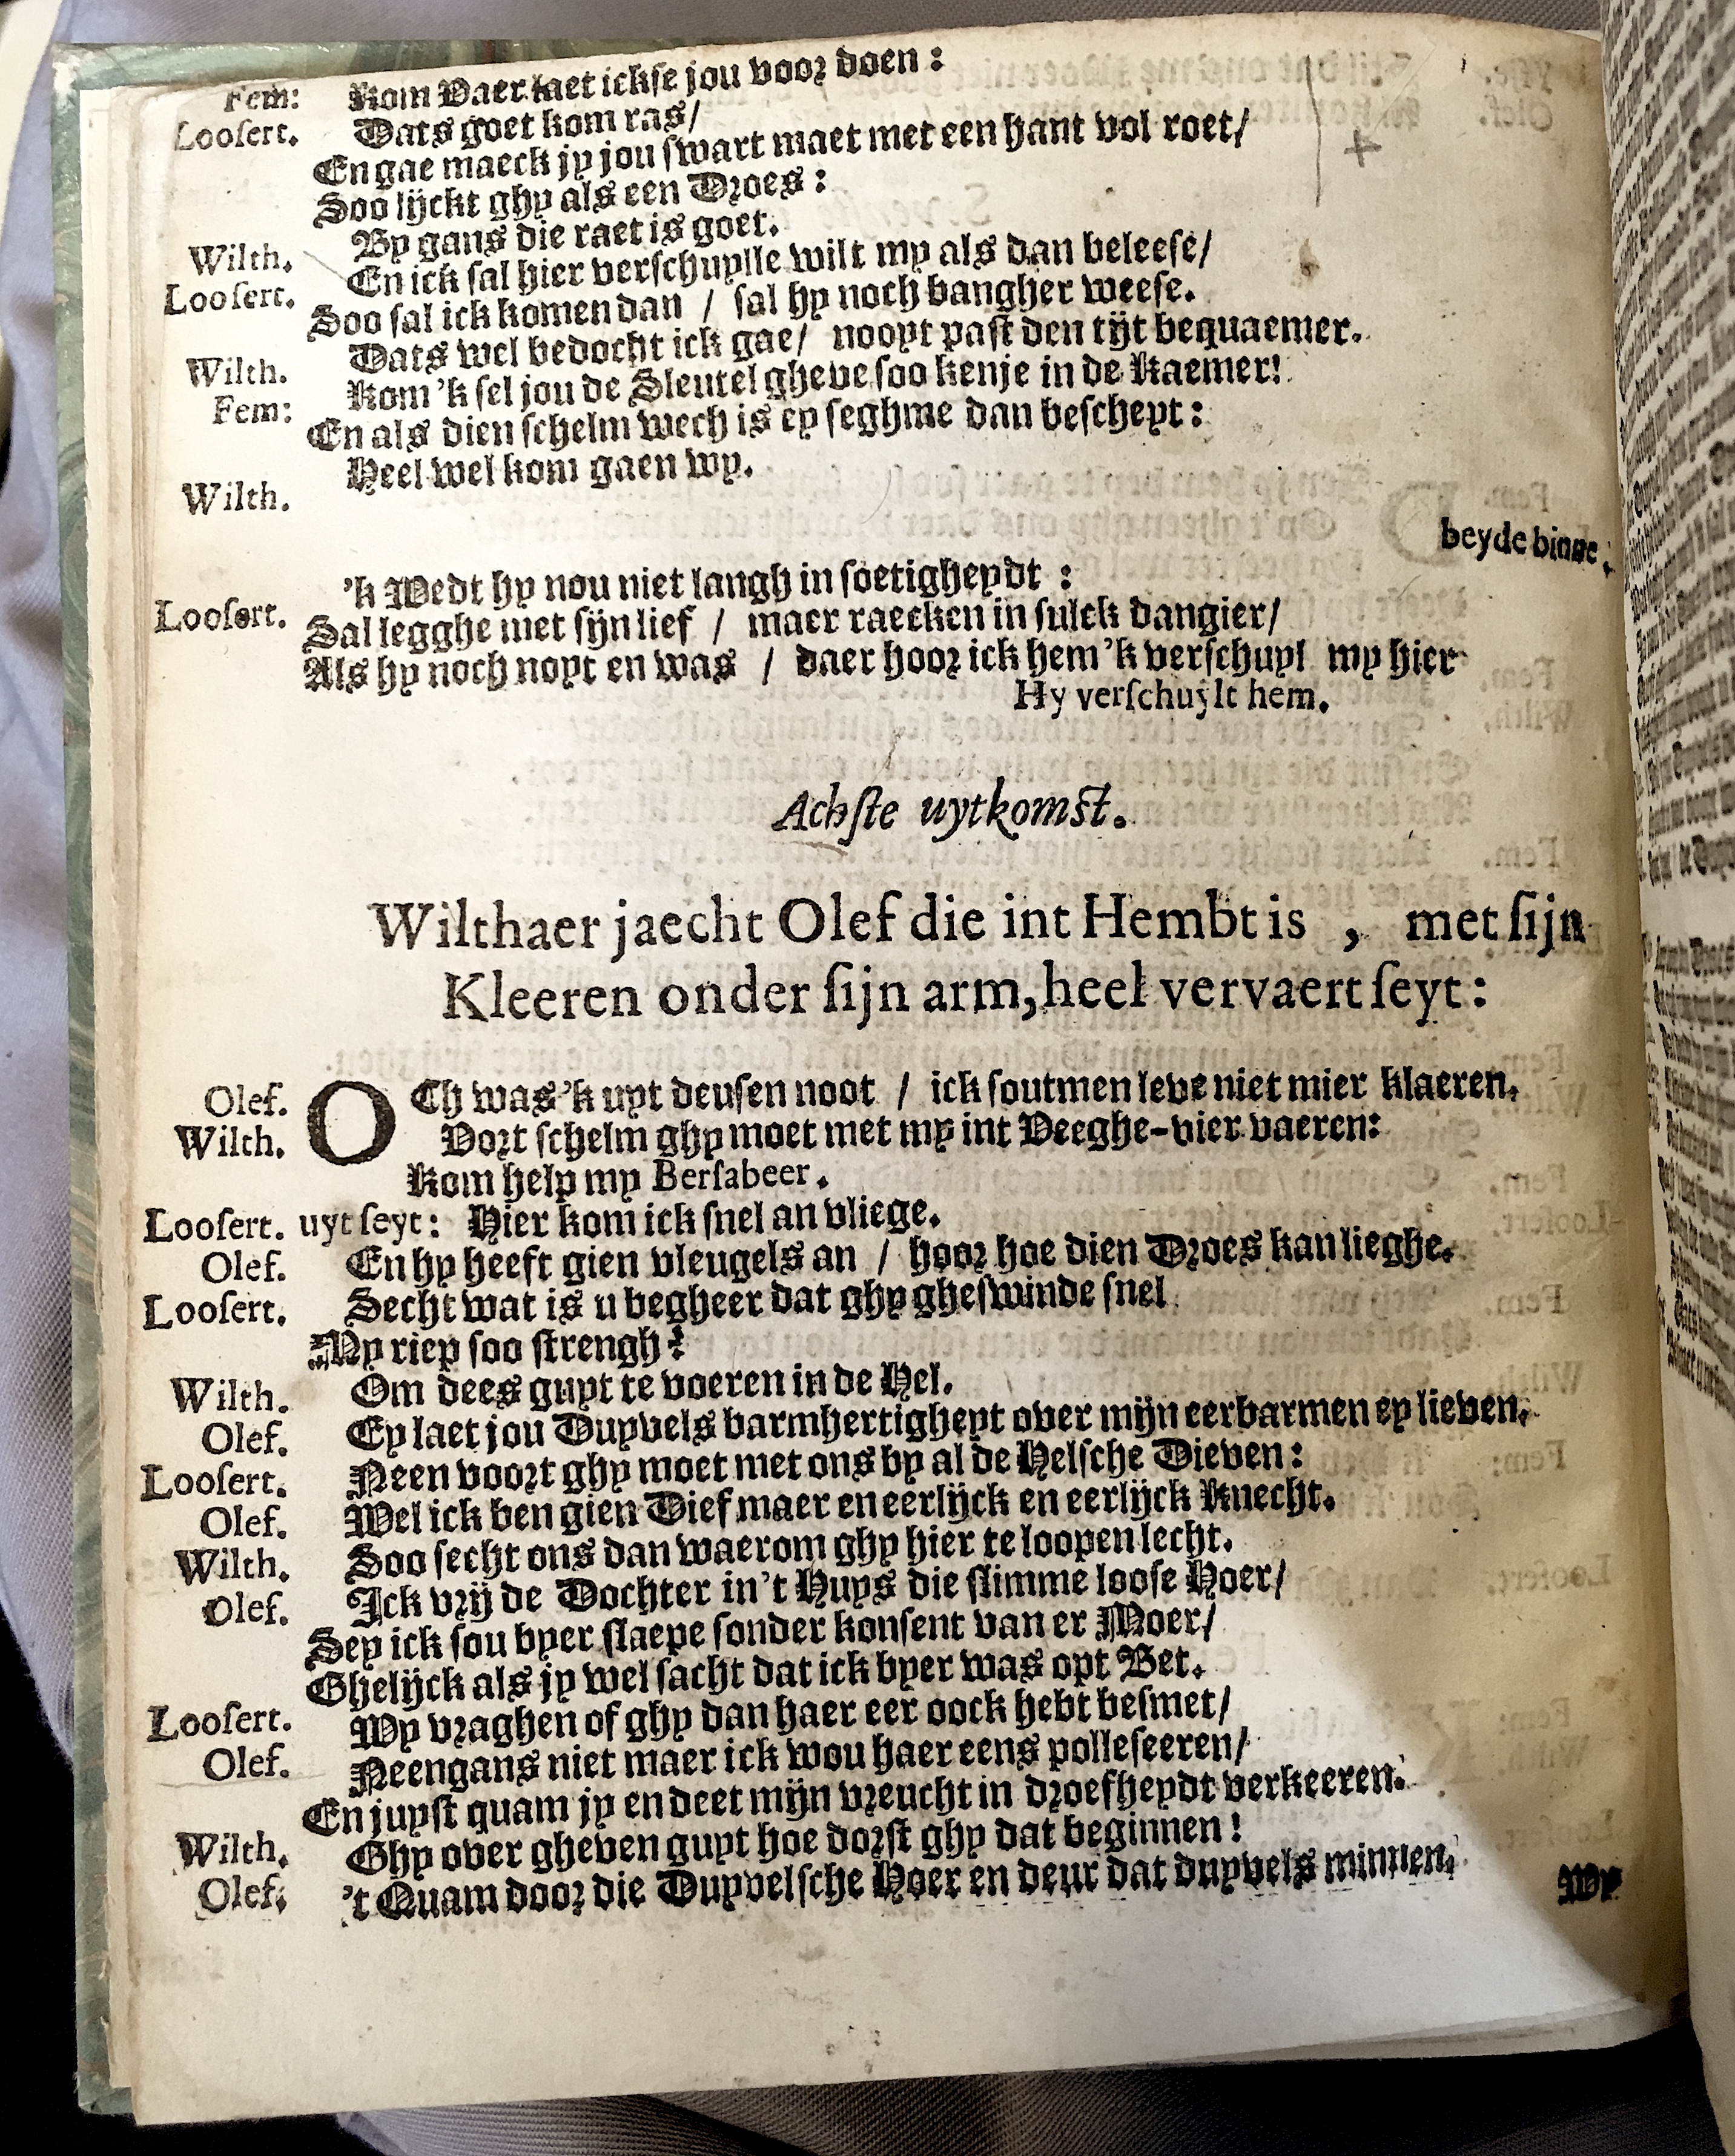 Fem: Kom Vaer laet ickse jou voor doen :
Loosert. Dats goet kom ras/
En gae maeck jy jou swart maet met een hant vol roet/
Soo lijckt ghy als een Droes :
Wilth. By gans die raet is goet.
Loosert. En ick sal hier verschuylle wilt my als dan beleese/
Soo sal ick komen dan / sal hy noch bangher weese.
Wilth. Dats wel bedocht ick gae/ nooyt past den tijt bequaemer.
Fem: Kom 'k sel jou de Sleutel gheve soo kenje in de Kaemer!
En als dien schelm wech is ey seghme dan bescheyt :
Wilth. Heel wel kom gaen wy.
beyde binne.
Loosert. 'k Wedt hy nou niet langh in soetigheydt :
Sal legghe met sijn lief / maer raecken in sulck dangier/
Als hy noch noyt en was / daer hoor ick hem 'k verschuyl my hier
Hy verschuylt hem.
Achste uytkomst.
Wilthaer jaecht Olef die int Hembt is , met sijn
Kleeren onder sijn arm, heel vervaert seyt :
Olef. OCh was 'k uyt deusen noot / ick soutmen leve niet mier klaeren.
Wilth. Vort schelm ghy moet met my int Veeghe-vier vaeren:
Kom help my Bersabeer.
Loosert. uyt seyt : Hier kom ick snel an vliege.
Olef. En hy heeft gien vleugels an / hoor hoe dien Droes kan lieghe.
Loosert. Secht wat is u begheer dat ghy gheswinde snel
My riep soo strengh?
Wilth. Om dees guyt te voeren in de Hel.
Olef. Ey laet jou Duyvels barmhertigheyt over mijn eerbarmen ey lieven.
Loosert. Neen voort ghy moet met ons by al de Helsche Dieven :
Olef. Wel ick ben gien Dief maer en eerlijck en eerlijck Knecht.
Wilth. Soo secht ons dan waerom ghy hier te loopen lecht.
Olef. Ick vrij de Dochter in 't Huys die slimme loose Hoer/
Sey ick sou byer slaepe sonder konsent van er Moer/
Ghelijck als jy wel sacht dat ick byer was opt Bet.
Loosert. Wy vraghen of ghy dan haer eer oock hebt besmet/
Olef. Neen gans niet maer ick wou haer eens polleseeren/
En juyst quam jy en deet mijn vreucht in droefheydt verkeeren.
Wilth. Ghy over gheven guyt hoe dorst ghy dat beginnen !
Olef: 't Quam door die Duyvelsche Hoer en deur dat duyvels minnen.
Wy